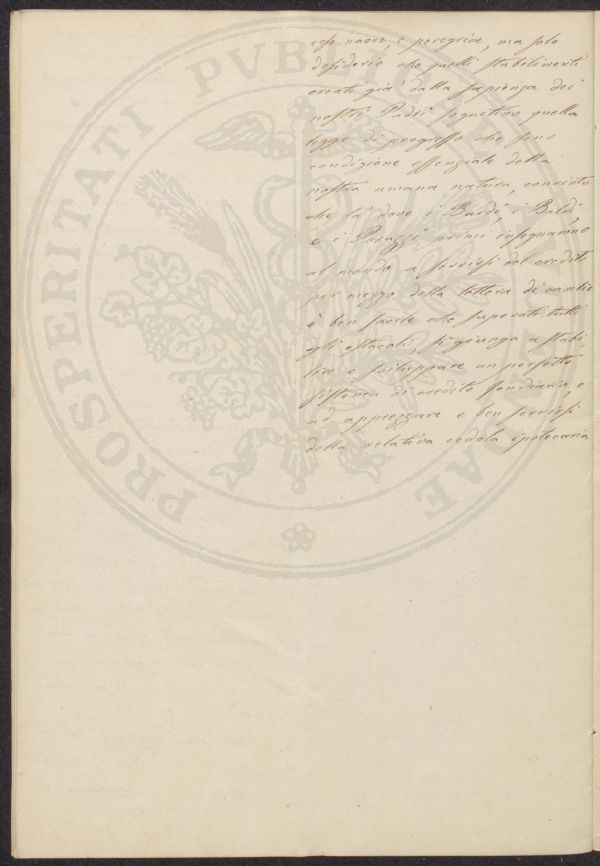 cose nuove, e peregrine, ma solo
desiderio che quelli stabilimenti
creati già dalla sapienza dei
nostri Padri seguitino quella
legge di progresso che sono
condizione essenziale della
nostra umana natura, convinto
che là dove i Bardi, i Baldi,
e i Peruzzi primi insegnarono
al mondo a servirsi del credito
per mezzo della lettera di cambio
è ben facile che superati tutti
gli ostacoli, si giunga a stabi-
lire e sviluppare un perfetto
sistema di credito fondiario, e
ad apprezzare e ben servirsi
della relativa cedola ipotecaria
PROSPERITATI PVBLICAE AVGENDAE